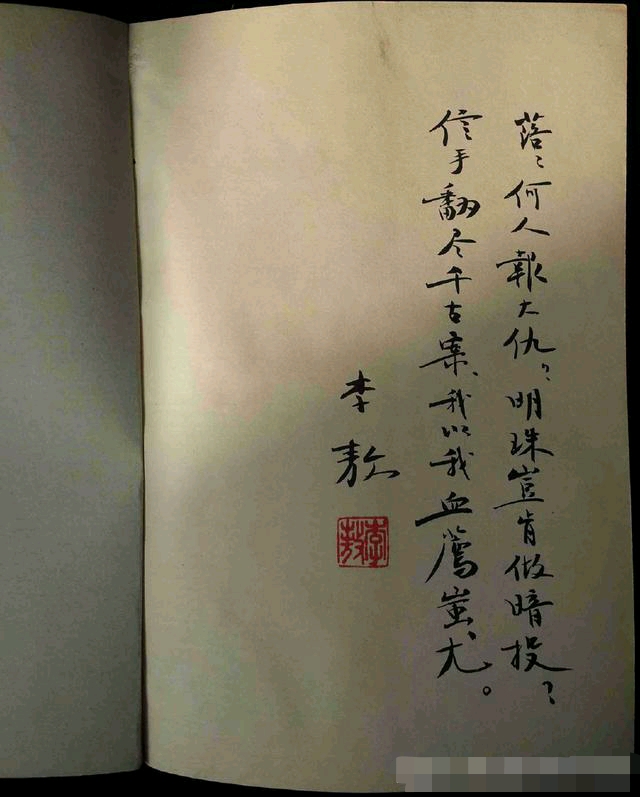 落〻何人報大仇？明珠豈肯做暗投？
信手翻尽千古案、我以我血薦蚩尤。
李敖
李敖